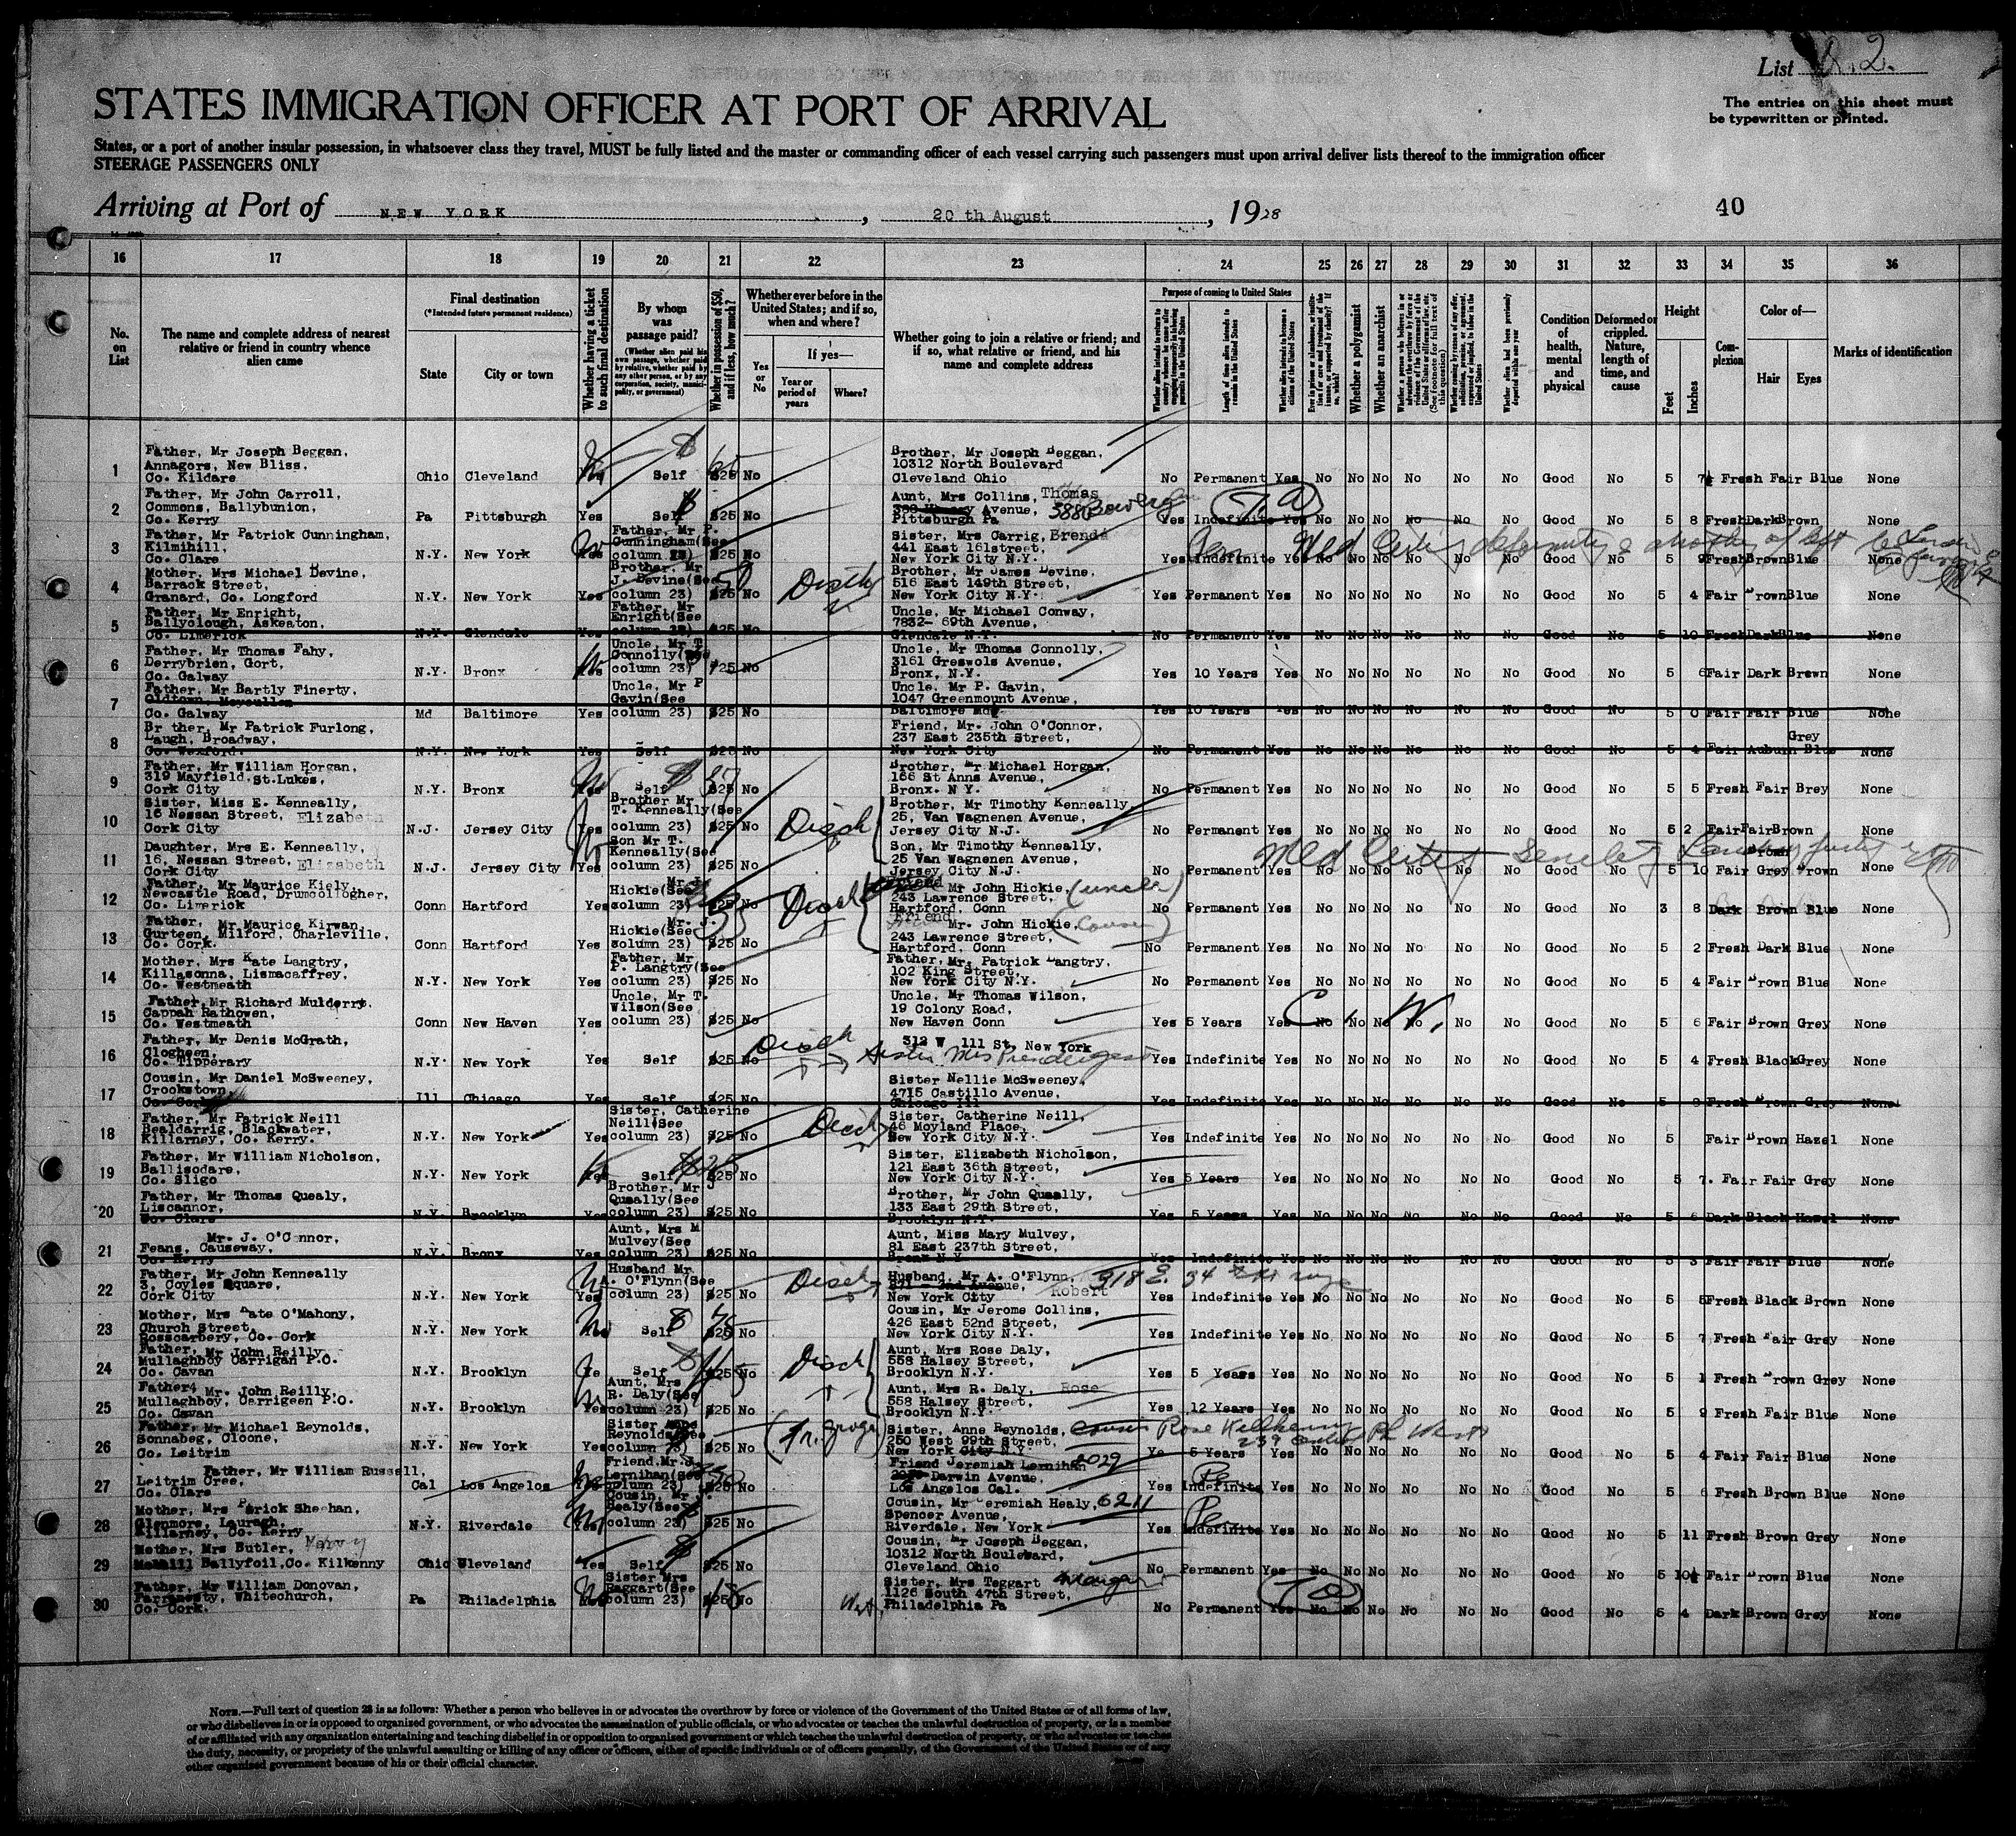 List 2.
STATES IMMIGRATION OFFICER AT PORT OF ARRIVAL
The entries on this sheet must
be typewritten or printed.
States, or a port of another insular possession, in whatsoever class they travel, MUST be fully listed and the master or commanding officer of each vessel carrying such passengers must upon arrival deliver lists thereof to the immigration officer
STEERAGE PASSENGERS ONLY
Arriving at Port of NEW YORK, 20 th August, 1928
40
16 17 18 19 20 21 22 23 24 25 26 27 28 29 30 31 32 33 34 35 36
No. on List
The name and complete address of nearest relative or friend in country whence alien came
Final destination
(*Intended future permanent residence)
State
City or town
Whether having a ticket to such final destination
By whom was passage paid?
(Whether alien paid his own passage, whether paid by relative, whether paid by any other person, or by any corporation, society, municipality, or government)
Whether in possession of $50, and if less, how much?
Whether ever before in the United States; and if so, when and where?
Yes or No
If yes—
Year or period of years
Where?
Whether going to join a relative or friend; and if so, what relative or friend, and his name and complete address
Purpose of coming to United States
Whether alien intends to return to country whence he came after engaging temporarily in laboring pursuits in the United States
Length of time alien intends to remain in the United States
Whether alien intends to become a citizen of the United States
Ever in prison or almshouse, or institution for care and treatment of the insane, or supported by charity? If so, which?
Whether a polygamist
Whether an anarchist
(See footnote for full text of this question)
Whether coming by reason of any offer, solicitation, promise, or agreement, expressed or implied, to labor in the United States
Whether alien had been previously deported within one year
Condition of health, mental and physical
Deformed or crippled. Nature, length of time, and cause
Height
Feet
Inches
Complexion
Color of—
Hair
Eyes
Marks of identification
1 Father, Mr Joseph Beggan, Annagors, New Bliss, Co. Kildare Ohio Cleveland Self $25 No Brother, Mr Joseph Beggan, 10312 North Boulevard Cleveland Ohio No Permanent Yes No No No No No No Good No 5 7½ Fresh Fair Blue None
2 Father, Mr John Carroll, Commons, Ballybunion, Co. Kerry Pa Pittsburgh Yes Self $25 No Aunt, Mrs Collins, Thomas Avenue, Pittsburgh Pa Yes Indefinite Yes No No No No No No Good No 5 8 Fresh Dark Brown None
3 Father, Mr Patrick Cunningham, Kilmihill, Co. Clare N.Y. New York Father, Mr P. Cunningham(See column 23) $25 No Sister, Mrs Carrig, Brenda 441 East 161street, New York City N.Y. Yes Indefinite Yes Med Certif deformity 5 9 Fresh Brown Blue None
4 Mother, Mrs Michael Devine, Barrack Street, Granard, Co. Longford N.Y. New York Yes Brother, Mr J. Devine(See column 23) $25 No Brother, Mr James Devine, 516 East 149th Street, New York City N.Y. Yes Permanent Yes No No No No No No Good No 5 4 Fair Brown Blue None
5 Father, Mr Enright, Ballyclough, Askeaton, Co. Limerick N.Y. Glendale Yes Father, Mr Enright(See column 23) $25 No Uncle, Mr Michael Conway, 7832- 69th Avenue, Glendale N.Y. No Permanent Yes No No No No No No Good No 5 10 Fresh Dark Blue None
6 Father, Mr Thomas Fahy, Derrybrien, Gort, Co. Galway N.Y. Bronx Yes Uncle, Mr T Connolly(See column 23) $25 No Uncle, Mr Thomas Connolly, 3161 Greswols Avenue, Bronx, N.Y. Yes 10 Years Yes No No No No No No Good No 5 6 Fair Dark Brown None
7 Father, Mr Bartly Finerty, Oldtown, Moycullen Co. Galway Md Baltimore Yes Uncle, Mr P Gavin(See column 23) $25 No Uncle, Mr P. Gavin, 1047 Greenmount Avenue, Baltimore Md Yes 10 Years Yes No No No No No No Good No 5 0 Fair Fair Blue None
8 Br ther, Mr Patrick Furlong, Laugh, Broadway, Co. Wexford. N.Y. New York Yes Self $25 No Friend, Mr. John O'Connor, 237 East 235th Street, New York City No Permanent Yes No No No No No No Good No 5 4 Fair Auburn Grey Blue None
9 Father, Mr William Horgan, 319 Mayfield, St.Lukes, Cork City N.Y. Bronx Self $25 No Brother, Mr Michael Horgan, 166 St Anns Avenue, Bronx. N.Y. No Permanent Yes No No No No No No Good No 5 5 Fresh Fair Brey None
10 Sister, Miss E. Kenneally, 16 Nessan Street, Elizabeth Cork City N.J. Jersey City Yes Brother Mr T. Kenneally(See column 23) $25 No Disch Brother, Mr Timothy Kenneally, 25, Van Wagnenen Avenue, Jersey City N.J. No Permanent Yes No No No No No No Good No 5 2 Fair Fair Brown None
11 Daughter, Mrs E. Kenneally, 16, Nessan Street, Elizabeth Cork City N.J. Jersey City Yes Son Mr T. Kenneally(See column 23) $25 No Son, Mr Timothy Kenneally, 25 Van Wagnenen Avenue, Jersey City N.J. No Permanent Yes Med Certif Senility No No No No No No Good No 5 10 Fair Grey Brown None
12 Father, Mr Maurice Kiely, Newcastle Road, Drumcollogher, Co. Limerick Conn Hartford Yes Mr J. Hickie(See column 23) $25 No Disch Mr John Hickie, (uncle) 243 Lawrence Street, Hartford, Conn No Permanent Yes No No No No No No Good No 3 8 Dark Brown Blue None
13 Father, Mr Maurice Kirwan, Gurteen, Milford, Charleville, Co. Cork. Conn Hartford Yes Mr. J. Hickie(See column 23) $25 No Friend, Mr. John Hickie, (Cousin) 243 Lawrence Street, Hartford, Conn No Permanent Yes No No No No No No Good No 5 2 Fresh Dark Blue None
14 Mother, Mrs Kate Langtry, Killasonna, Lismacaffrey, Co. Westmeath N.Y. New York Yes Father, Mr P. Langtry(See column 23) $25 No Father, Mr. Patrick Langtry, 102 King Street, New York City N.Y. No Permanent Yes No No No No No No Good No 5 4 Fair Brown Blue None
15 Father, Mr Richard Mulderry. Cappah Rathowen, Co. Westmeath Conn New Haven Yes Uncle, Mr T. Wilson(See column 23) $25 No Uncle, Mr Thomas Wilson, 19 Colony Road, New Haven Conn Yes 5 Years Yes No No No No No No Good No 5 6 Fair Brown Grey None
16 Father, Mr Denis McGrath, Clogheen, Co. Tipperary N.Y. New York Yes Self $25 No Disch 312 W 111 St, New York Sister Mrs Prendergast Yes Indefinite Yes No No No No No No Good No 5 4 Fresh Black Grey None
17 Cousin, Mr Daniel McSweeney, Crookstown, Co. Cork Ill Chicago Yes Self $25 No Sister Nellie McSweeney, 4715 Castillo Avenue, Chicago Ill Yes Indefinite Yes No No No No No No Good No 5 8 Fresh Brown Grey None
18 Father, Mr Patrick Neill Bealdarrig, Blackwater, Killarney, Co. Kerry. N.Y. New York Yes Sister, Catherine Neill(See column 23) $25 No Disch Sister, Catherine Neill, 46 Moyland Place, New York City N.Y. Yes Indefinite Yes No No No No No No Good No 5 Fair Brown Hazel None
19 Father, Mr William Nicholson, Ballisodare, Co. Sligo N.Y. New York Self $25 No Sister, Elizabeth Nicholson, 121 East 36th Street, New York City N.Y. Yes 5 Years Yes No No No No No No Good No 5 7. Fair Fair Grey None
20 Father, Mr Thomas Quealy, Liscannor, Co. Clare N.Y. Brooklyn Yes Brother, Mr J Queally(See column 23) $25 No Brother, Mr John Queally, 133 East 29th Street, Brooklyn N.Y. Yes 5 Years Yes No No No No No No Good No 5 6 Dark Black Hazel None
21 Mr. J. O'Connor, Feans, Causeway, Co. Kerry N.Y. Bronx Yes Aunt, Mrs M Mulvey(See column 23) $25 No Aunt, Miss Mary Mulvey, 81 East 237th Street, Bronx N.Y. Yes Indefinite Yes No No No No No No Good No 5 3 Fair Fair Blue None
22 Father, Mr John Kenneally 3, Coyles Square, Cork City N.Y. New York Yes Husband Mr. A. O'Flynn(See column 23) $25 No Disch Husband, Mr A. O'Flynn, Robert 318 E. 34 New York City Yes Indefinite Yes No No No No No No Good No 5 5 Fresh Black Brown None
23 Mother, Mrs Kate O'Mahony, Church Street, Rosscarbery, Co. Cork N.Y. New York Self $25 No Cousin, Mr Jerome Collins, 426 East 52nd Street, New York City N.Y. Yes Indefinite Yes No No No No No No Good No 5 7 Fresh Fair Grey None
24 Father, Mr John Reilly Mullaghboy Carrigan P.O. Co. Cavan N.Y. Brooklyn Self $25 No Disch Aunt, Mrs Rose Daly, 558 Halsey Street, Brooklyn N.Y. Yes 5 Years Yes No No No No No No Good No 5 1 Fresh Brown Grey None
25 Father, Mr. John Reilly, Mullaghboy, Carrigeen P.O. Co. Cavan N.Y. Brooklyn Yes Aunt, Mrs R. Daly(See column 23) $25 No Aunt, Mrs R. Daly, Rose 558 Halsey Street, Brooklyn N.Y. Yes 12 Years Yes No No No No No No Good No 5 9 Fresh Fair Blue None
26 Father, Mr Michael Reynolds, Sonnabeg, Cloone, Co. Leitrim N.Y. New York Yes Sister Anne Reynolds(See column 23) $25 No Sister, Anne Reynolds, 250 West 99th Street, New York City N.Y. Cousin Rose 239 Ye 5 Years Yes No No No No No No Good No 5 4 Fair Fair Blue None
27 Father, Mr William Russell, Leitrim Cree, Co. Clare Cal Los Angelos Friend,Mr J. Lernihan(See column 23) $25 No Friend Jeremiah Lernihan 2029 Darwin Avenue, Los Angelos Cal. Yes Indefinite Yes No No No No No No Good No 5 6 Fresh Brown Blue None
28 Mother, Mrs Patrick Sheehan, Glenmore, Lauragh, Killarney, Co. Kerry N.Y. Riverdale Yes Cousin, Mr J. Healy(See column 23) $25 No Cousin, Mr Jeremiah Healy, 6211 Spencer Avenue, Riverdale, New York Yes Indefinite Yes No No No No No No Good No 5 11 Fresh Brown Grey None
29 Mother, Mrs Butler, Mary Ballyfoil, Co. Kilkenny Ohio Cleveland Yes Self $25 No Cousin, Mr Joseph Beggan, 10312 North Bouleward, Cleveland Ohio No Permanent Yes No No No No No No Good No 5 10½ Fair Brown Blue None
30 Father, Mr William Donovan, Farranesty, Whitechurch, Co. Cork. Pa Philadelphia Sister Mrs Raggart(See column 23) $25 No Sister, Mrs Teggart 1126 South 47th Street, Philadelphia Pa No Permanent Yes No No No No No No Good No 5 4 Dark Brown Grey None
NOTE.—Full text of question 28 is as follows: Whether a person who believes in or advocates the overthrow by force or violence of the Government of the United States or of all forms of law,
or who disbelieves in or is opposed to organized government, or who advocates the assassination of public officials, or who advocates or teaches the unlawful destruction of property, or is a member
of or affiliated with any organization entertaining and teaching disbelief in or opposition to organized government or which teaches the unlawful destruction of property, or who advocates or teaches
the duty, necessity, or propriety of the unlawful assaulting or killing of any officer or officers, either of specific individuals or of officers generally, of the Government of the United States or of any
other organized government because of his or their official character.